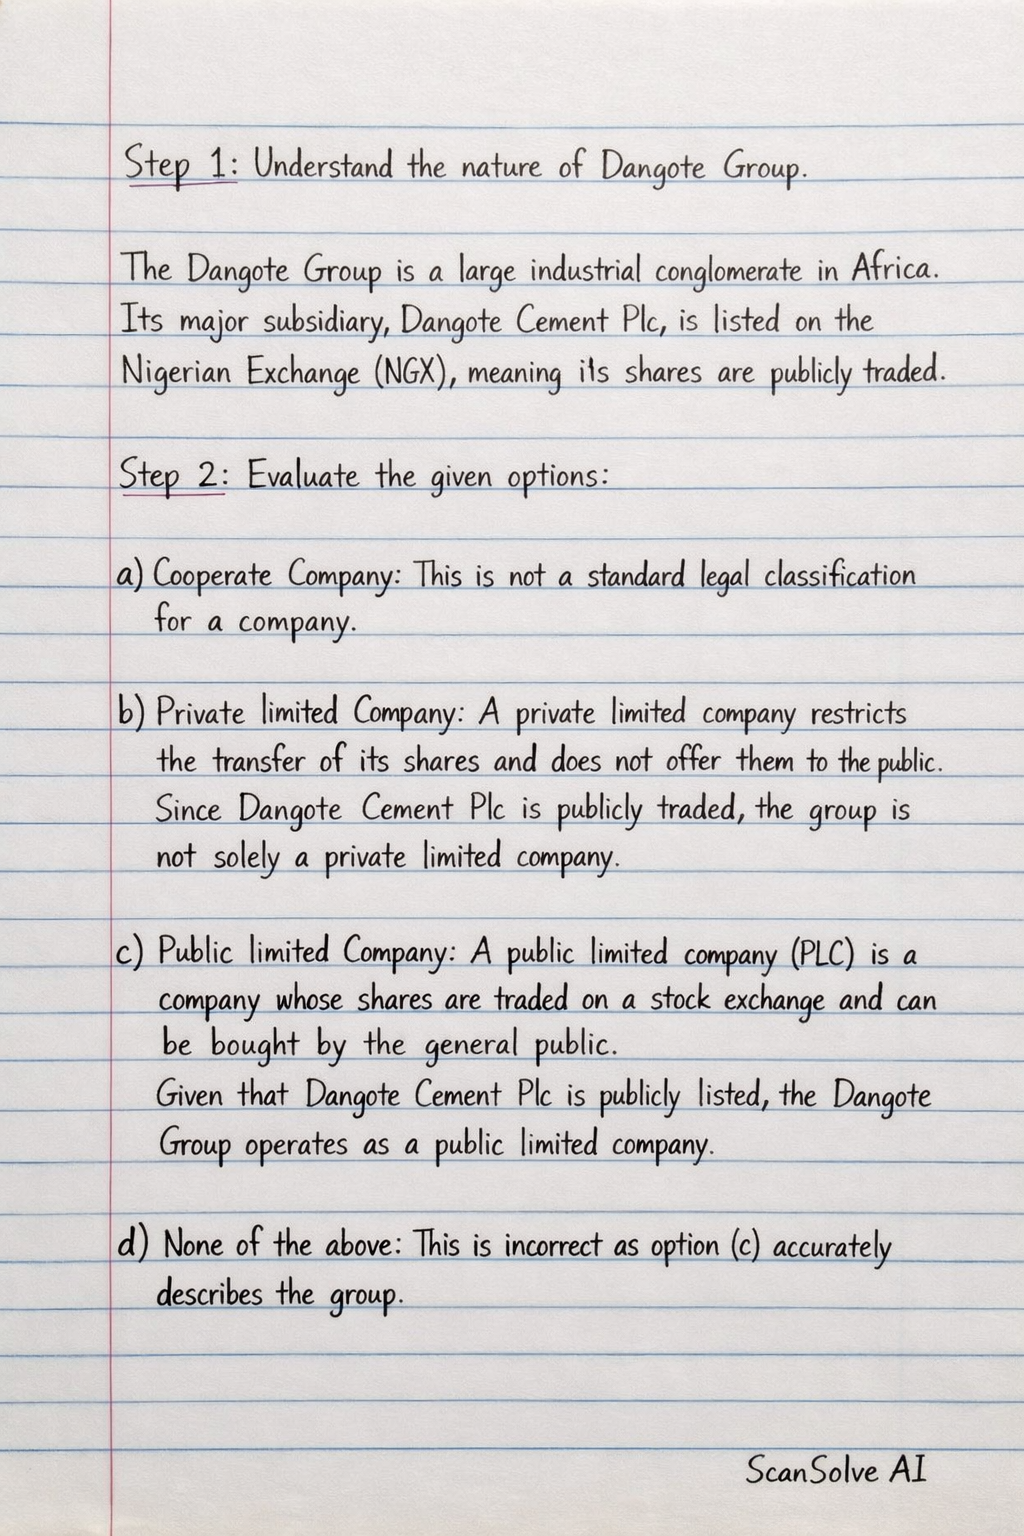 Step 1: Understand the nature of Dangote Group.
The Dangote Group is a large industrial conglomerate in Africa.
Its major subsidiary, Dangote Cement Plc, is listed on the
Nigerian Exchange (NGX), meaning its shares are publicly traded.
Step 2: Evaluate the given options:
a) Cooperate Company: This is not a standard legal classification
for a company.
b) Private limited Company: A private limited company restricts
the transfer of its shares and does not offer them to the public.
Since Dangote Cement Plc is publicly traded, the group is
not solely a private limited company.
c) Public limited Company: A public limited company (PLC) is a
company whose shares are traded on a stock exchange and can
be bought by the general public.
Given that Dangote Cement Plc is publicly listed, the Dangote
Group operates as a public limited company.
d) None of the above: This is incorrect as option (c) accurately
describes the group.
ScanSolve AI